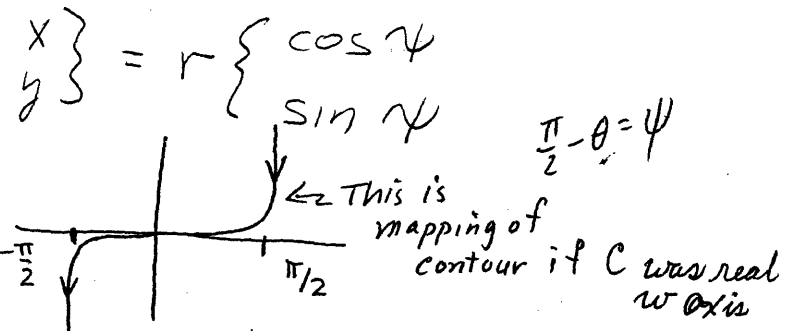 x } = r { cos ψ
y } sin ψ
π/2 - θ = ψ
← This is
mapping of
contour if C was real
w axis
-π/2
π/2